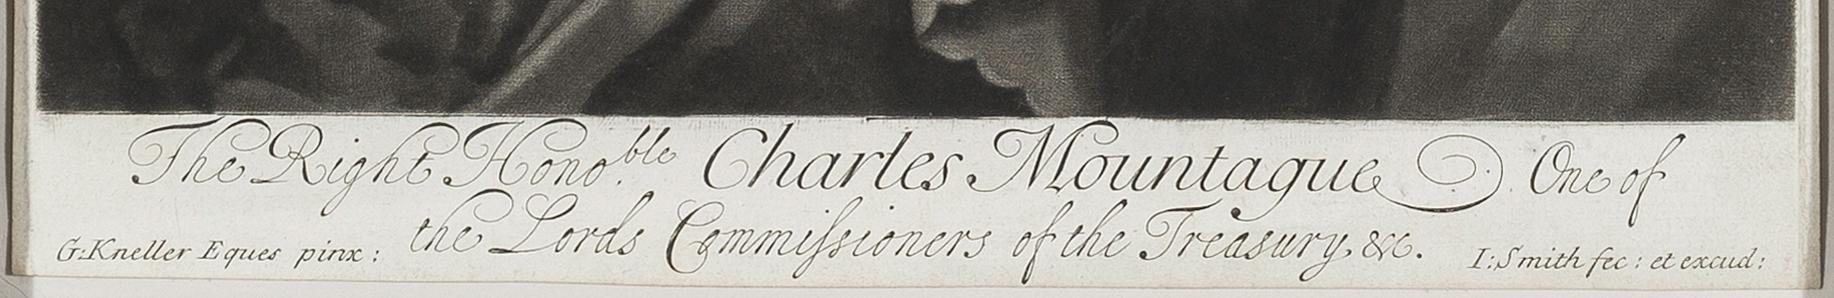 The Right Hono.ble Charles Mountague One of
the Lords Commiſsioners of the Treasury &c.
G: Kneller Eques pinx:
I: Smith fec: et excud: